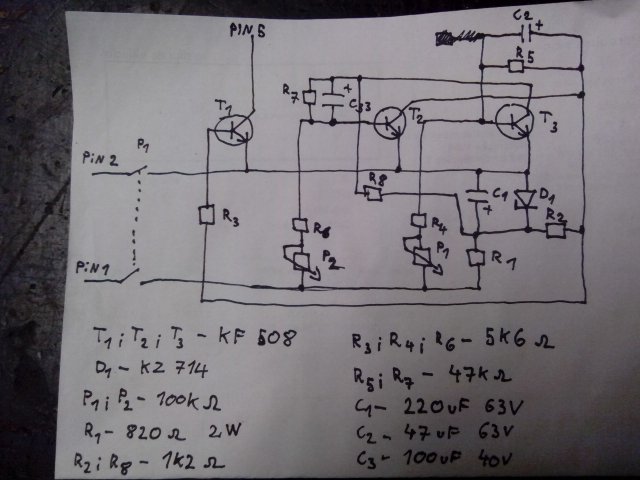 C2
+
PIN 5
R5
R7
+
C33
T1
T2
T3
PIN 2
P1
R8
C1
+
D1
R3
R6
R4
R2
P2
P1
R1
PIN 1
T1; T2; T3 - KF 508
D1 - KZ 714
P1; P2 - 100kΩ
R1 - 820 Ω 2W
R2; R8 - 1k2 Ω
R3; R4; R6 - 5k6 Ω
R5; R7 - 47kΩ
C1 - 220uF 63V
C2 - 47uF 63V
C3 - 100uF 40V